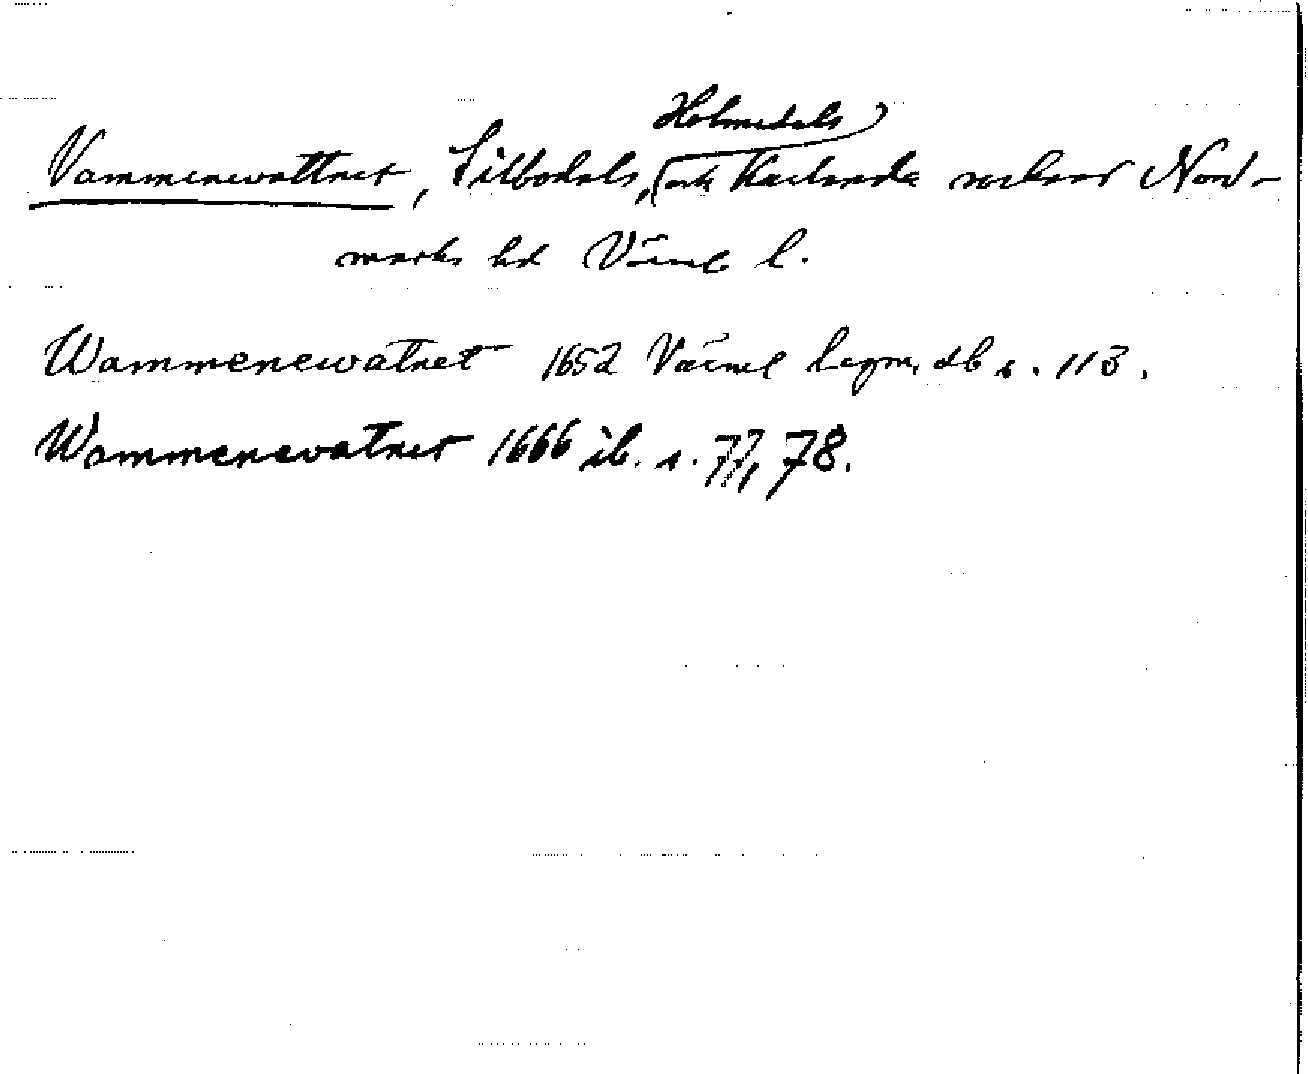 Vammenewattnet, Silbodals, Holmedals och Karlanda socknar Nord-
marks hd Värml l.
Wammenewatnet 1652 Värml lagm. db s. 113.
Wammenewatnet 1666 ib. s. 77, 78.